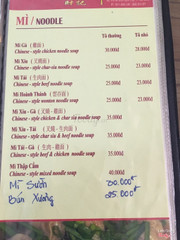 MÌ / NOODLE
Tô thường Tô nhỏ
Mì Gà ( 雞面 )
Chinese - style chicken noodle soup 30.000đ 20.000đ
Mì Xíu ( 叉燒面 )
Chinese - style char siu noodle soup 35.000đ 25.000đ
Mì Tái ( 生肉面 )
Chinese - style beef noodle soup 35.000đ 25.000đ
Mì Hoành Thánh ( 雲吞面 )
Chinese - style wonton noodle soup 35.000đ 25.000đ
Mì Xíu - Gà ( 叉燒 - 雞面 )
Chinese - style char siu & chicken noodle soup 35.000đ
Mì Xíu - Tái ( 叉燒 - 生肉面 )
Chinese - style char siu & beef noodle soup 35.000đ
Mì Tái - Gà ( 生肉 - 雞面 )
Chinese - style beef & chicken noodle soup 35.000đ
Mì Thập Cẩm
Chinese - style mixed noodle soup 40.000đ
Mì Sườn 30.000đ
Bán Xương 25.000đ